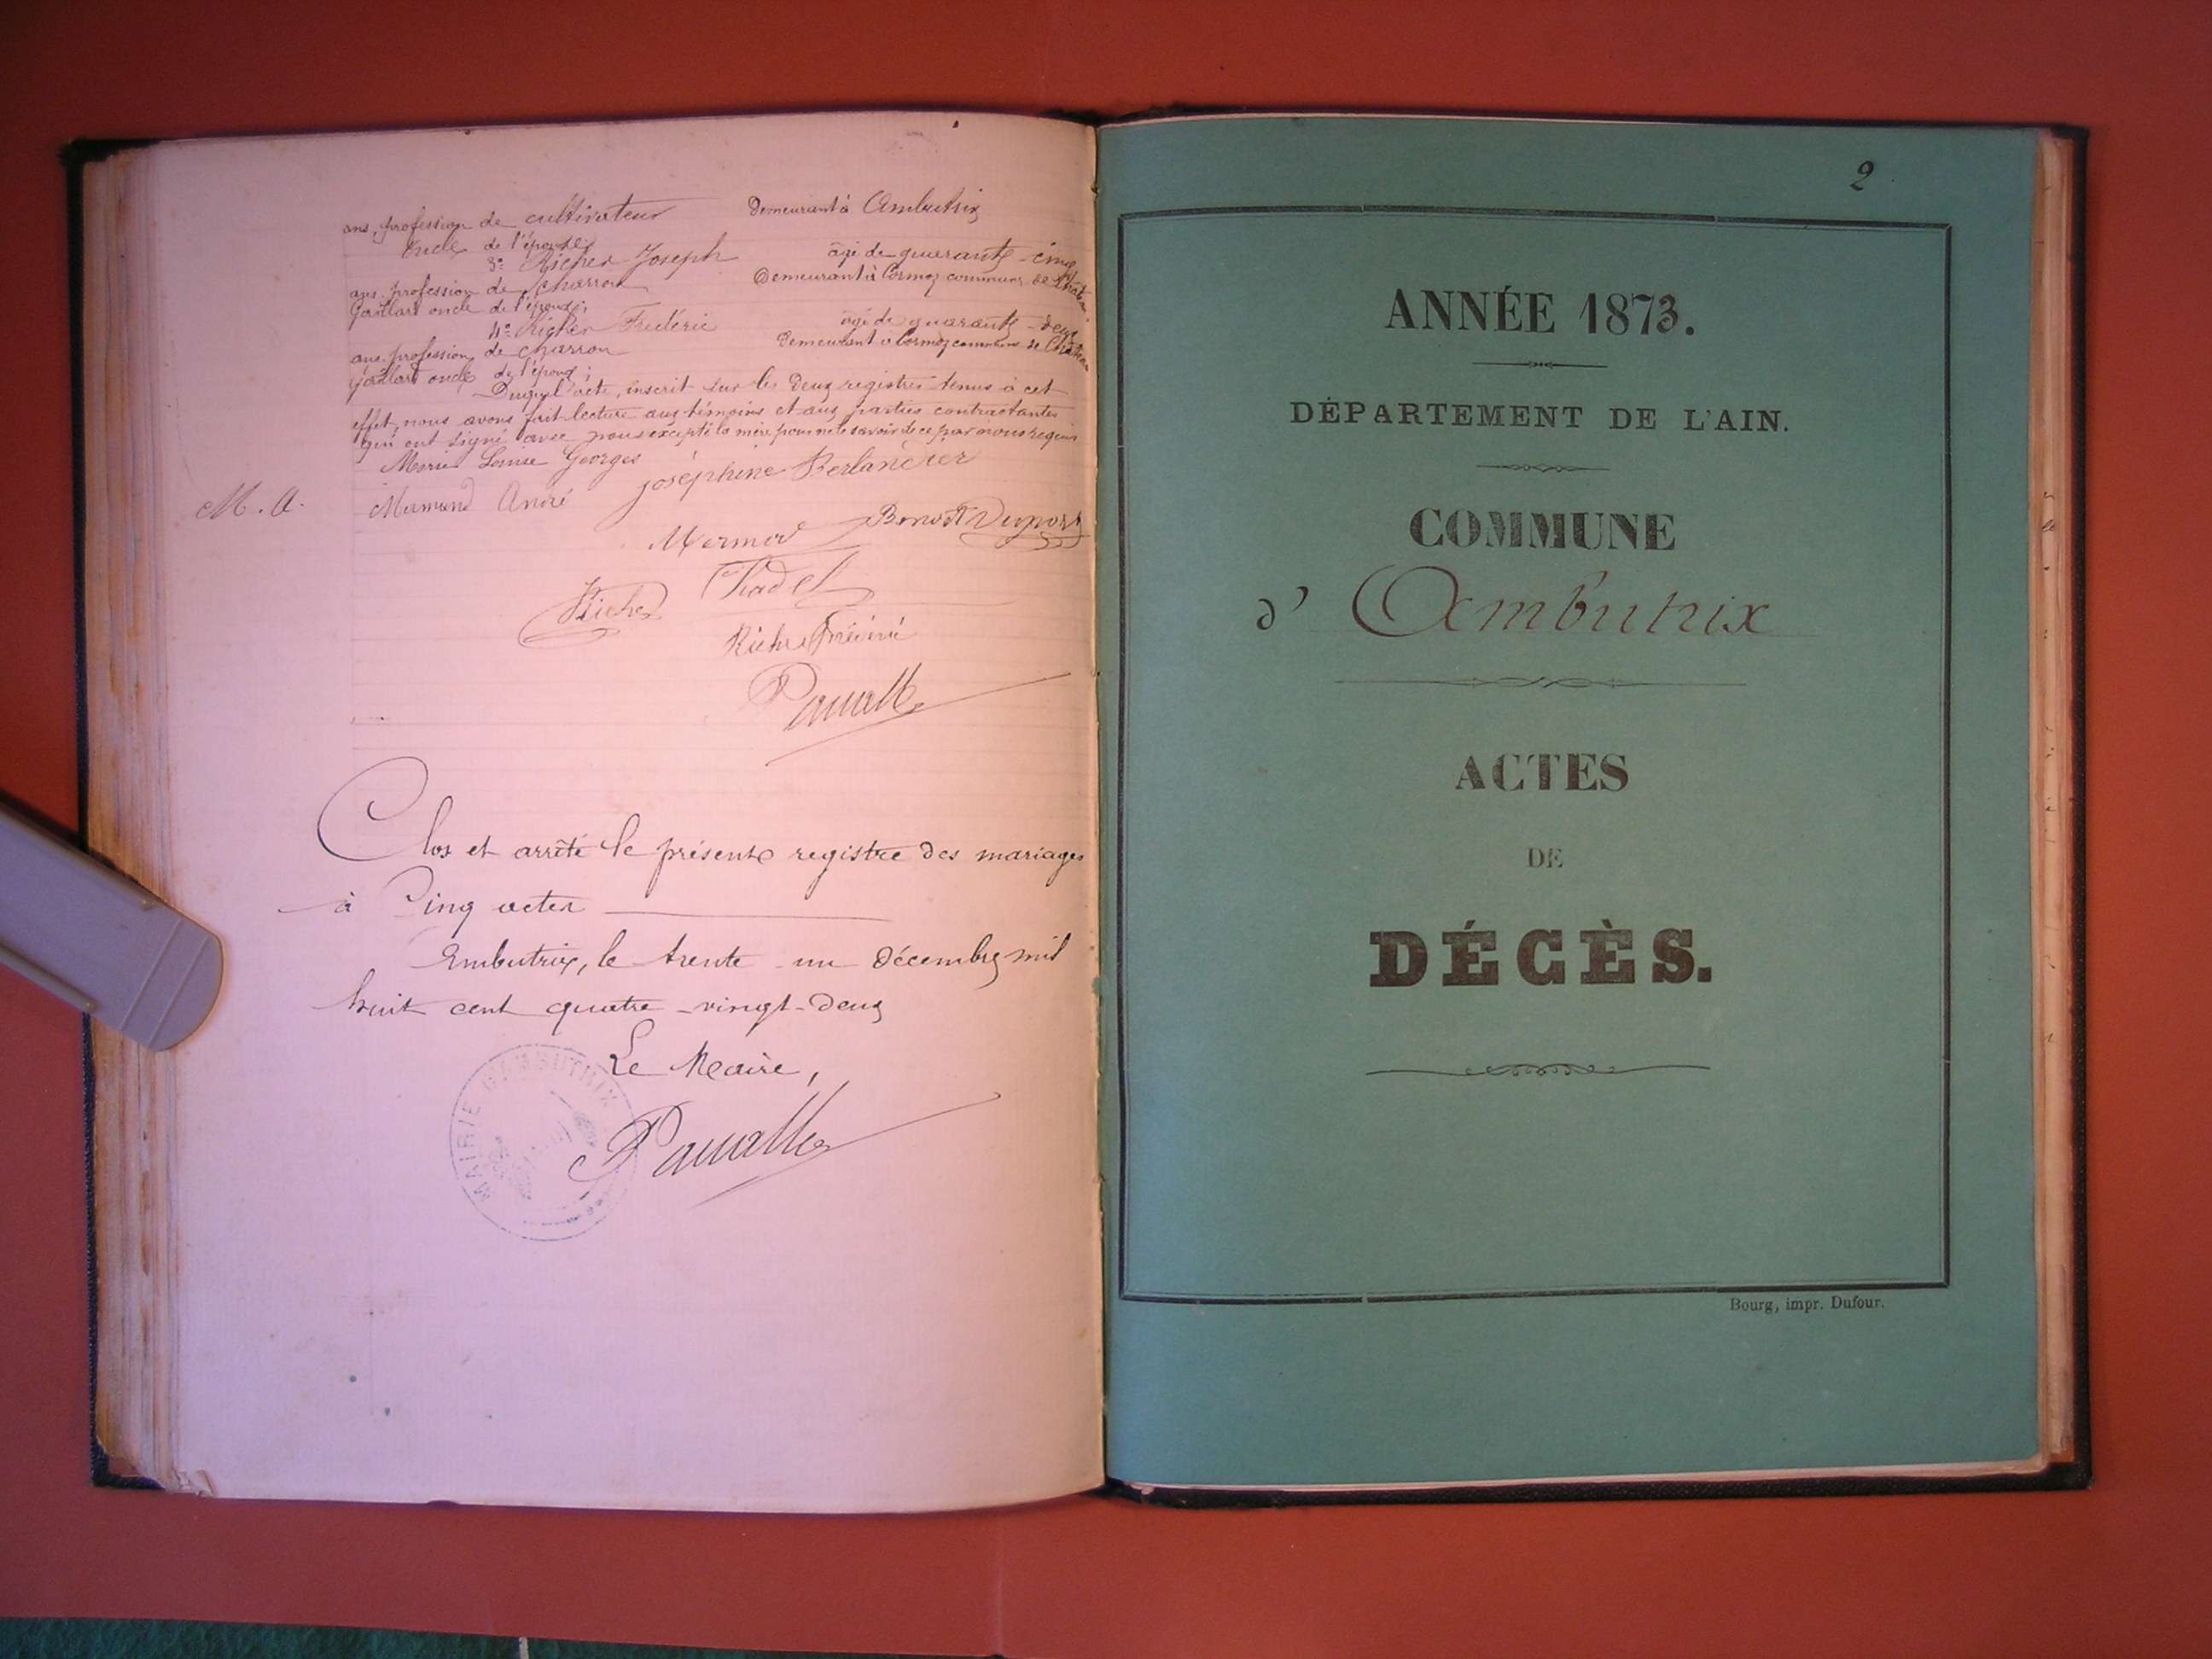 ans, profession de cultivateur demeurant à Ambutrix
oncle de l'épouse;
3º Richer Joseph âgé de quarante-cinq
ans, profession de charron demeurant à Cormoz commune de Château
Gaillard oncle de l'épouse;
4º Richer Frédéric âgé de quarante-deux
ans, profession de charron demeurant à Cormoz commune de Château
Gaillard oncle de l'épouse;
Duquel acte, inscrit sur les deux registres tenus à cet
effet, nous avons fait lecture aux témoins et aux parties contractantes
qui ont signé avec nous excepté la mère pour ne le savoir de ce par nous requis
Marie Louise Georges
Joséphine Berlandier
M. A. Mermand André
Benoit Dupont
Mermod
Richer
Riche Frédéric
Clos et arrêté le présent registre des mariages
à Cinq actes
Ambutrix, le trente un décembre mil
huit cent quatre-vingt-deux
Le Maire,
MAIRIE D'AMBUTRIX
2
ANNÉE 1873.
DÉPARTEMENT DE L'AIN.
COMMUNE
d' Ambutrix
ACTES
DE
DÉCÈS.
Bourg, impr. Dufour.